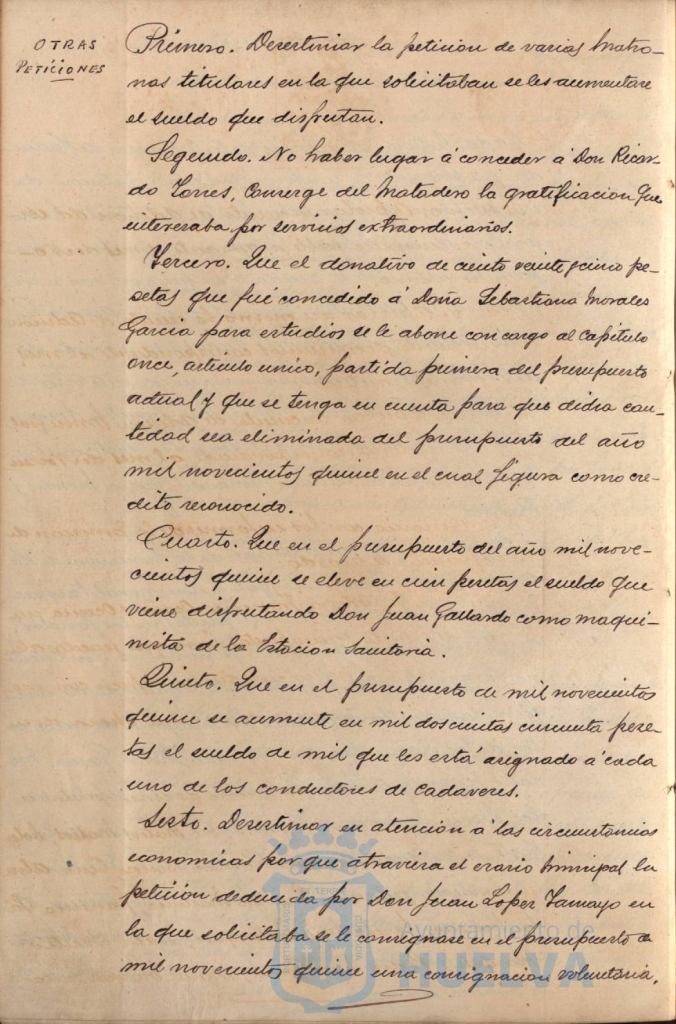 OTRAS
PETICIONES
Primero. Desestimar la petición de varias Matro-
nas titulares en la que solicitaban se les aumentare
el sueldo que disfrutan.
Segundo. No haber lugar á conceder á Don Ricar-
do Torres, Conserge del Matadero la gratificacion que
interesaba por servicios extraordinarios.
Tercero. Que el donativo de ciento veinte y cinco pe-
setas que fué concedido á Doña Sebastiana Morales
Garcia para estudios se le abone con cargo al Capitulo
once, articulo unico, partida primera del presupuesto
actual y que se tenga en cuenta para que dicha can-
tidad sea eliminada del presupuesto del año
mil novecientos quince en el cual figura como cre-
dito reconocido.
Cuarto. Que en el presupuesto del año mil nove-
cientos quince se eleve en cien pesetas el sueldo que
viene disfrutando Don Juan Gallardo como maqui-
nista de la Estacion Sanitaria.
Quinto. Que en el presupuesto de mil novecientos
quince se aumente en mil doscientas cincuenta pese-
tas el sueldo de mil que les está asignado á cada
uno de los conductores de cadaveres.
Sexto. Desestimar en atención á las circunstancias
economicas por que atraviesa el erario municipal la
petición deducida por Don Juan Lopez Tamayo en
la que solicitaba se le consignase en el presupuesto de
mil novecientos quince una consignacion voluntaria.
Ayuntamiento de
HUELVA